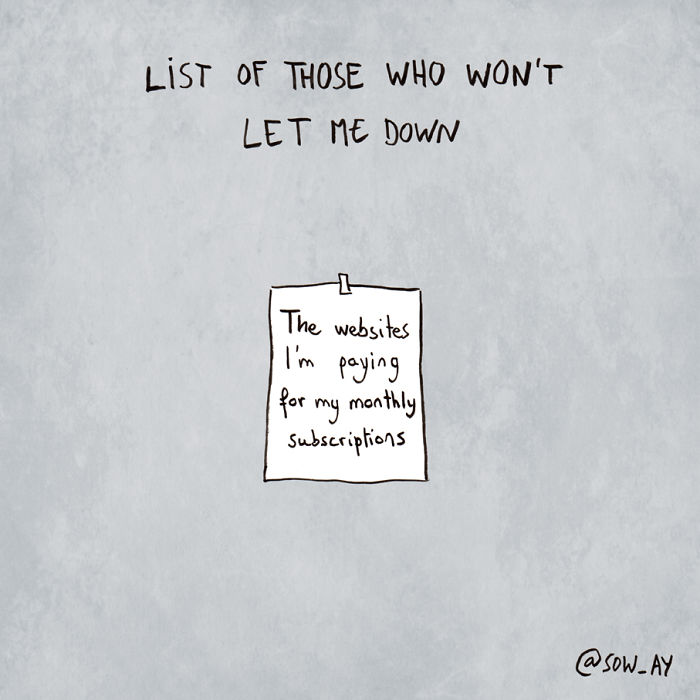 LIST OF THOSE WHO WON'T
LET ME DOWN
The websites
I'm paying
for my monthly
subscriptions
@SOW_AY